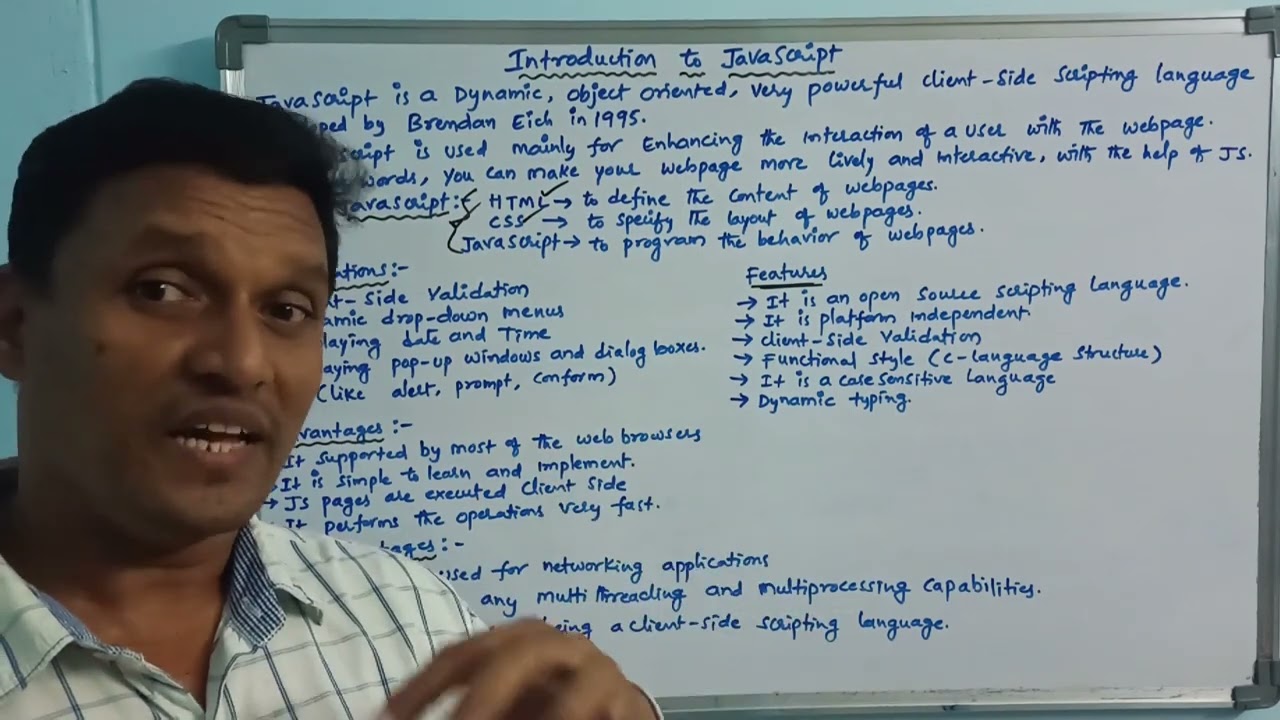 Introduction to JavaScript
JavaScript is a Dynamic, object oriented, very powerful client-side scripting language
ped by Brendan Eich in 1995.
cript is used mainly for Enhancing the interaction of a user with the webpage.
words, you can make your webpage more lively and interactive, with the help of JS.
Javascript:- HTML → to define the content of webpages.
CSS → to specify the layout of webpages.
JavaScript → to program the behavior of webpages.
ations:-
t-side validation
amic drop-down menus
laying date and Time
aying pop-up windows and dialog boxes.
(like alert, prompt, conform)
vantages:-
It supported by most of the web browsers
It is simple to learn and implement.
→ JS pages are executed client side
It performs the operations very fast.
tages:-
used for networking applications
any multi threading and multiprocessing capabilities.
being a client-side scripting language.
Features
→ It is an open source scripting language.
→ It is platform independent.
→ client-side validation
→ Functional style (C-language structure)
→ It is a case sensitive language
→ Dynamic typing.